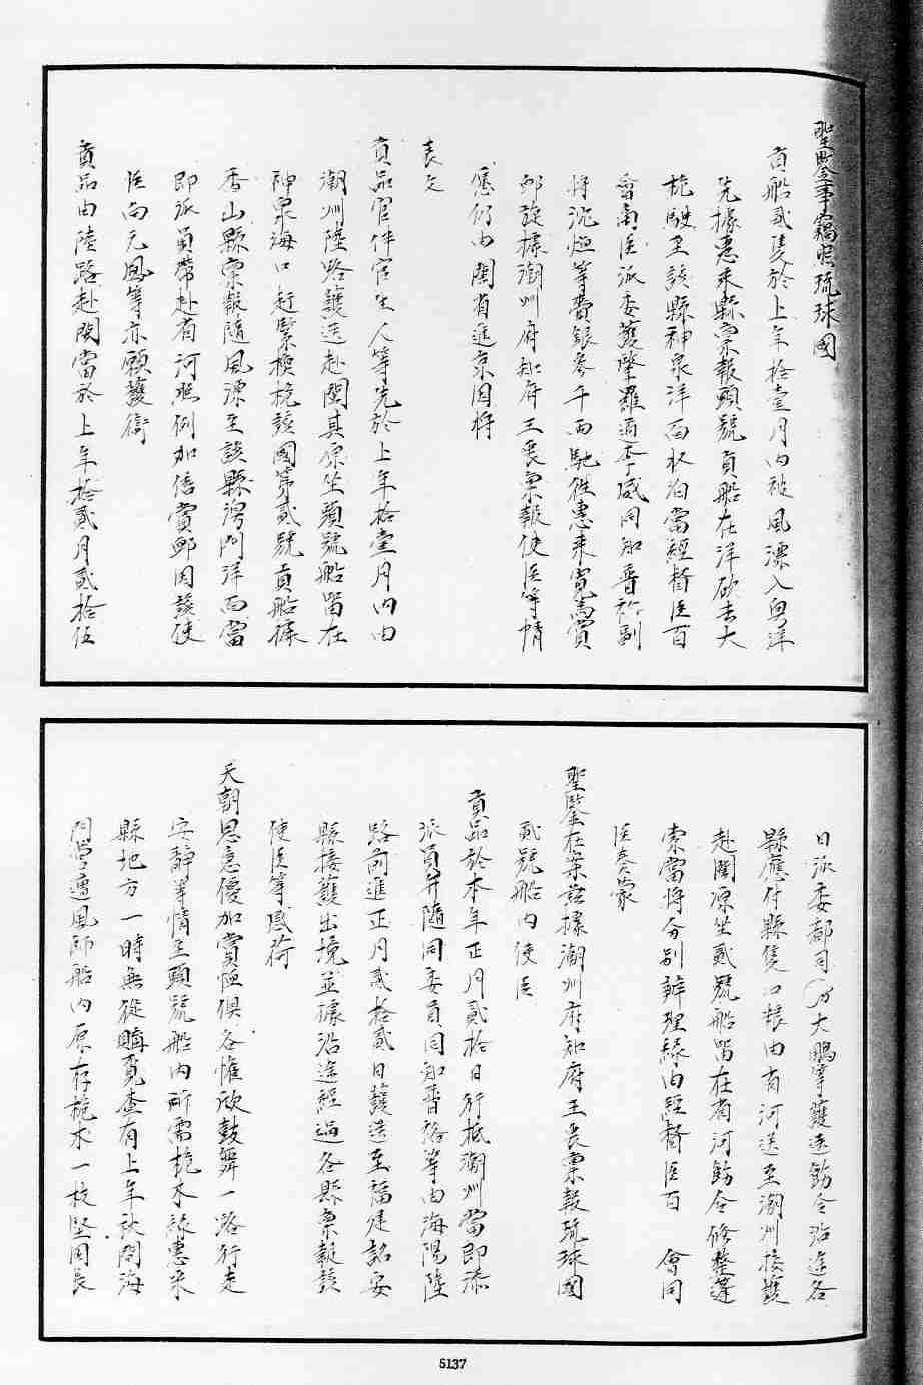 聖鑒事竊照琉球國
貢船貳隻於上年拾壹月內被風漂入粵洋
先據惠來縣稟報頭號貢船在洋砍去大
桅駛至該縣神泉洋面收泊當經督臣百
會商臣派委護肇羅道李威同知晉裕副
將沈烜等賫銀參千兩馳往惠來寬為賞
卹旋據潮州府知府王 稟報使臣等情
愿仍由閩省進京因將
表文
貢品官伴官生人等先於上年拾壹月內由
潮州陸路護送赴閩其原坐頭號船留在
神泉海口趕緊換桅該國第貳號貢船據
香山縣稟報隨風漂至該縣灣門洋面當
即派員帶赴省河照例加倍賞卹因該使
臣向元鳳等亦願護衛
貢品由陸路赴閩當於上年拾貳月貳拾伍
日派委都司 大鵬等護送飭令沿途各
縣應付縣隻口糧由省河送至潮州接護
赴閩原坐貳號船留在省河飭令修整蓬
索當將分別辦理緣由經督臣百 會同
臣奏蒙
聖鑒在案茲據潮州府知府王 稟報琉球國
貳號船內使臣
貢品於本年正月貳拾日行抵潮州當即添
派員弁隨同委員同知晉裕等由海陽陸
路前進正月貳拾貳日護送至福建詔安
縣接護出境並據沿途經過各縣稟報該
使臣等感荷
天朝恩意優加賞恤俱各懽欣鼓舞一路行走
安靜等情至頭號船內所需桅木緣惠來
縣地方一時無從購覓查有上年秋間海
門營遭風師船內原存桅木一枝堅固長
5137